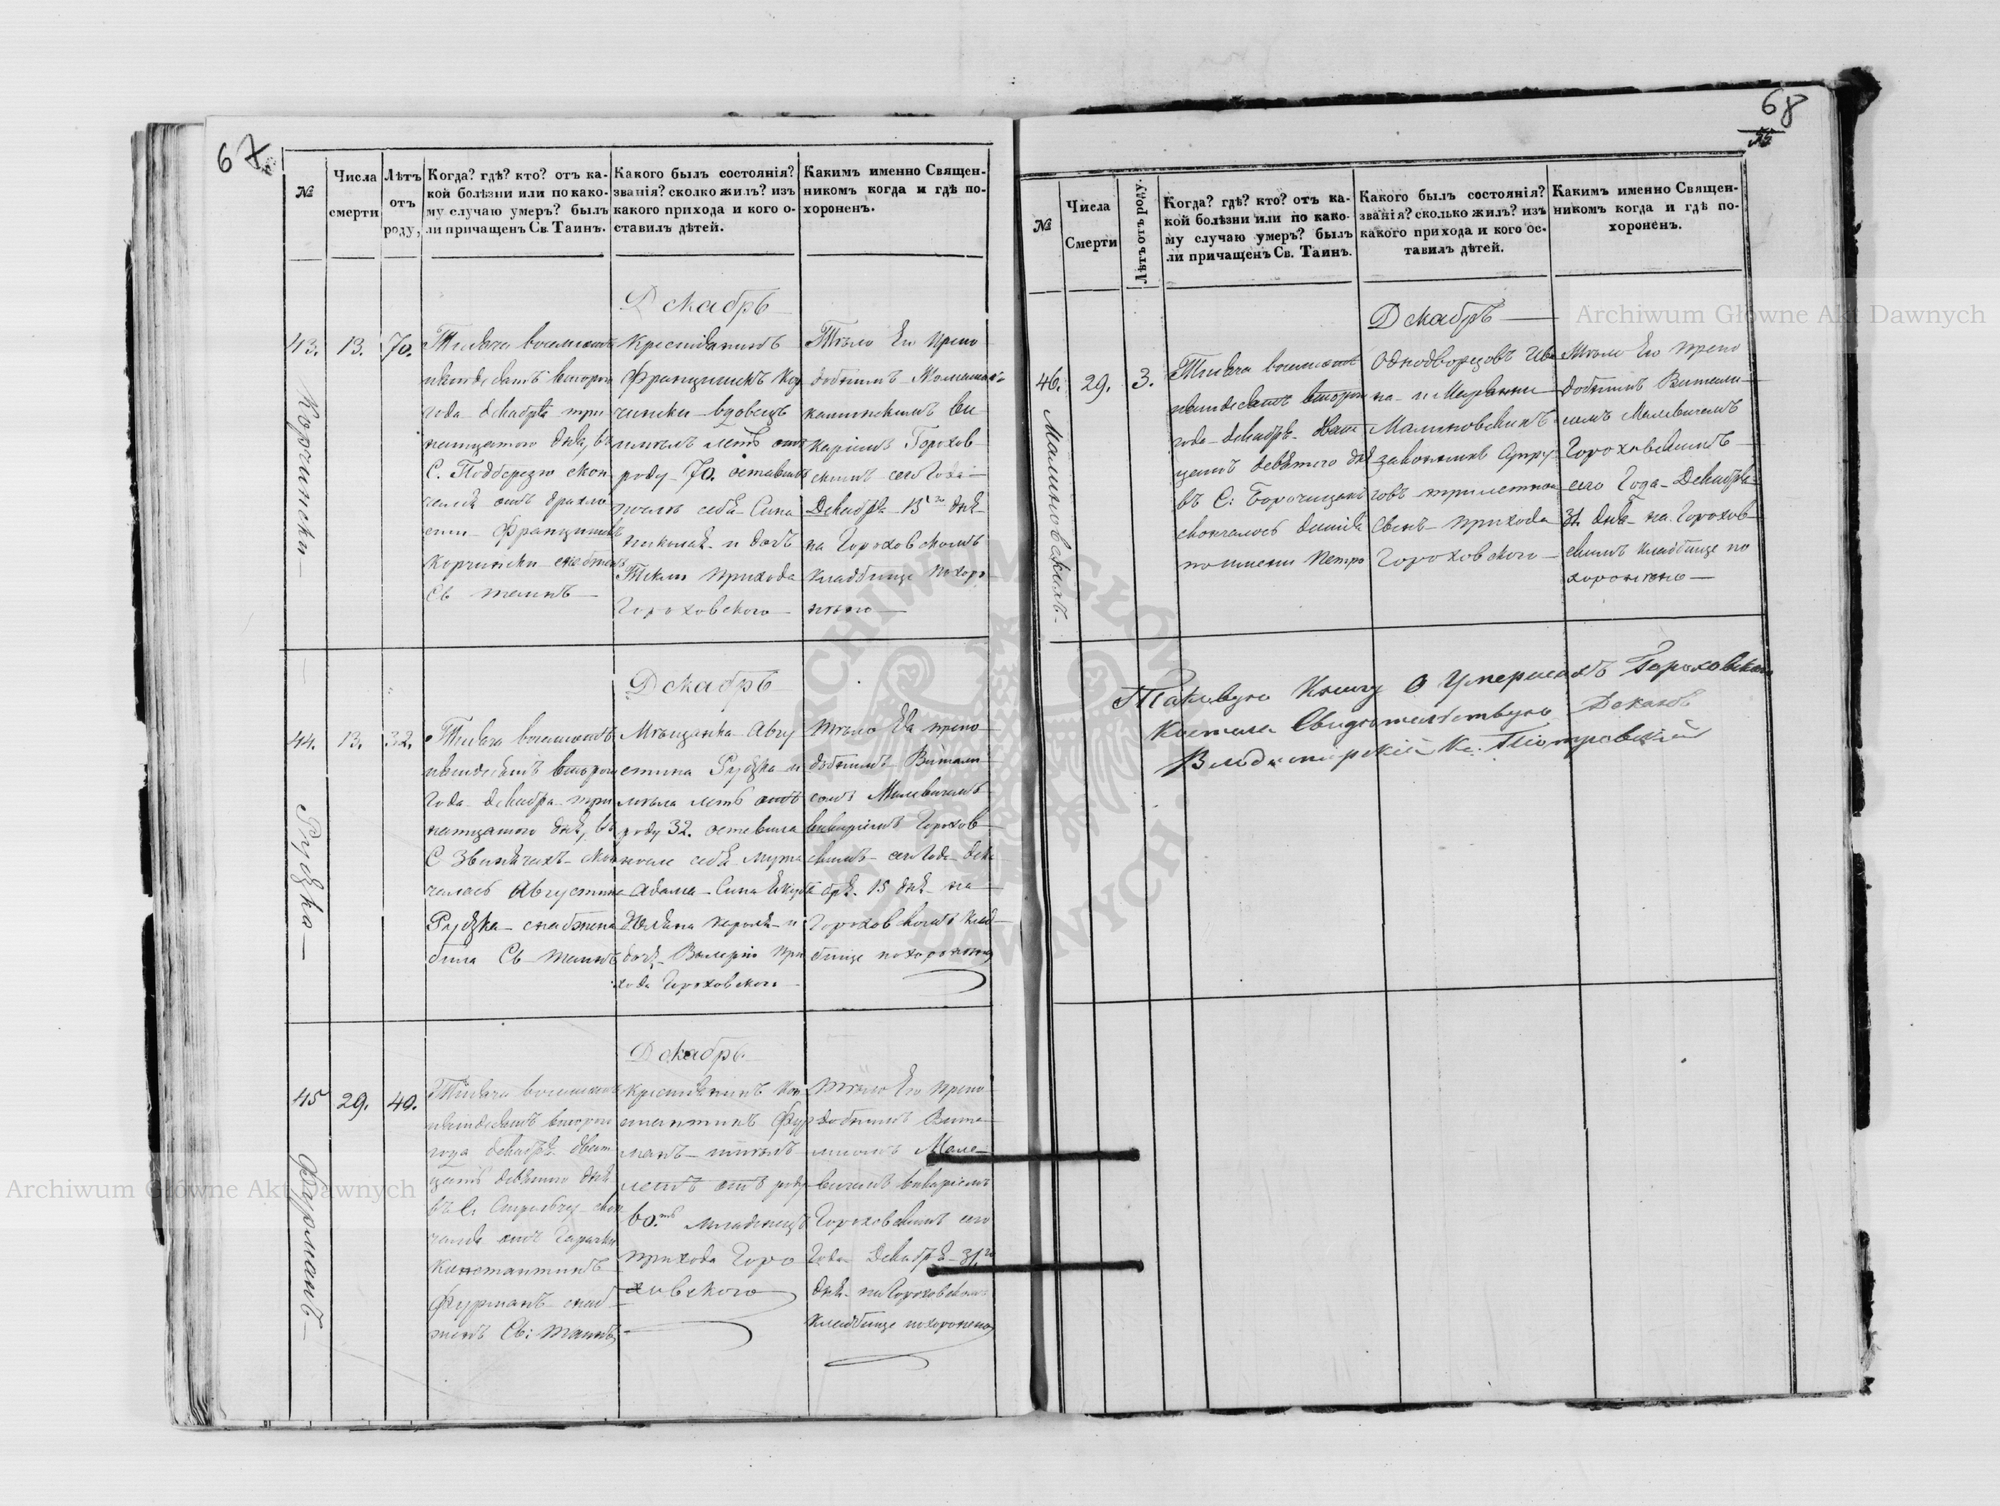 67.
№
Числа
смерти
Лѣтъ
отъ
роду,
Когда? гдѣ? кто? отъ ка-
кой болѣзни или по како-
му случаю умеръ? былъ
ли причащенъ Св Таинъ.
Какого былъ состоянія?
званія? сколко жилъ? изъ
какого прихода и кого о-
ставилъ дѣтей.
Каким именно Священ-
никомъ когда и гдѣ по-
хоронен.
Декабрь
43.
Корчински
13.
70.
Тысяча восемсотъ
пятдесятъ второго
года декабря три
натцатого дня, въ
С. Подберезю скон
чался отъ дряхло
сти Францишекъ
Корчински
Св таинъ
Крестьянинъ
Францишекъ Кор
чински вдовецъ
лѣтъ отъ
роду 70. оставилъ
после себя Сына
Николая и дочь
Теклю прихода
Гороховского
Тѣло Его препо
добнымъ
Горохов
скимъ сего Года
Декабря 15 дня
на Гороховскомъ
кладбище похоро
нѣно
Декабрь
44.
Рудзка
13.
32.
Тысяча восемсотъ
пятдесятъ второго
года декабря три
натцатого дня, въ
С Звинячахъ скон
чалась Августина
Рудзка снабжена
была Св таинъ
Мѣщанка Авгу
стина Рудзка и
мѣла лѣтъ отъ
роду 32. оставила
после себя мужа
Адама Сына
Кароля и
дочь Валерию при
хода Гороховского
Тѣло Ея препо
добнымъ Витали
сомъ Малевичемъ
викаріемъ Горохов
скимъ сего Года дека
бря 15 дня на
Гороховскомъ клад
бище похоронено
Декабрь
45
Фурманъ
29.
40.
Тысяча восемсотъ
пятдесятъ второго
года декабря двят
цать девятого дня
въ С. скон
чался отъ Горячки
Константинъ
Фурманъ снаб
женъ Св: таинъ
Крестьянинъ Кон
стантинъ Фур
манъ имѣлъ
летъ отъ роду
прихода Горо
ховского
Тѣло Его препо
добнымъ Вита
лисомъ Мале
вичемъ викаріемъ
Гороховскимъ сего
Года Декабря 31го
дня на Гороховскомъ
кладбище похоронено
68
№
Числа
Смерти
Лѣтъ отъ роду.
Когда? гдѣ? кто? отъ ка-
кой болѣзни или по како-
му случаю умеръ? былъ
ли причащенъ Св. Таинъ.
Какого былъ состоянія?
званія? сколько жилъ? изъ
какого прихода и кого ос-
тавилъ дѣтей.
Какимъ именно Священ-
никомъ когда и гдѣ по-
хороненъ.
Декабрь
46.
Малиновскихъ
29.
3.
Тысяча восемсотъ
пятдесятъ второго
года декабря двят
цать девятого дня
въ С:
скончалось дитя
по имени Петро
Однодворцовъ Ива
на и Марьянны
Малиновскихъ
законныхъ супру
говъ трилетный
Сынъ прихода
Гороховского
Тѣло Его препо
добнымъ Витали
сомъ Малевичемъ
Гороховскимъ
сего Года Декабря
31. дня на Горохов
скимъ кладбище по
хоронено
Таковую Книгу о Умершихъ Гороховского
Костела Свидѣтельствую Деканъ
Владимирскій Кс: Піотровскій
Archiwum Główne Akt Dawnych
Archiwum Główne Akt Dawnych